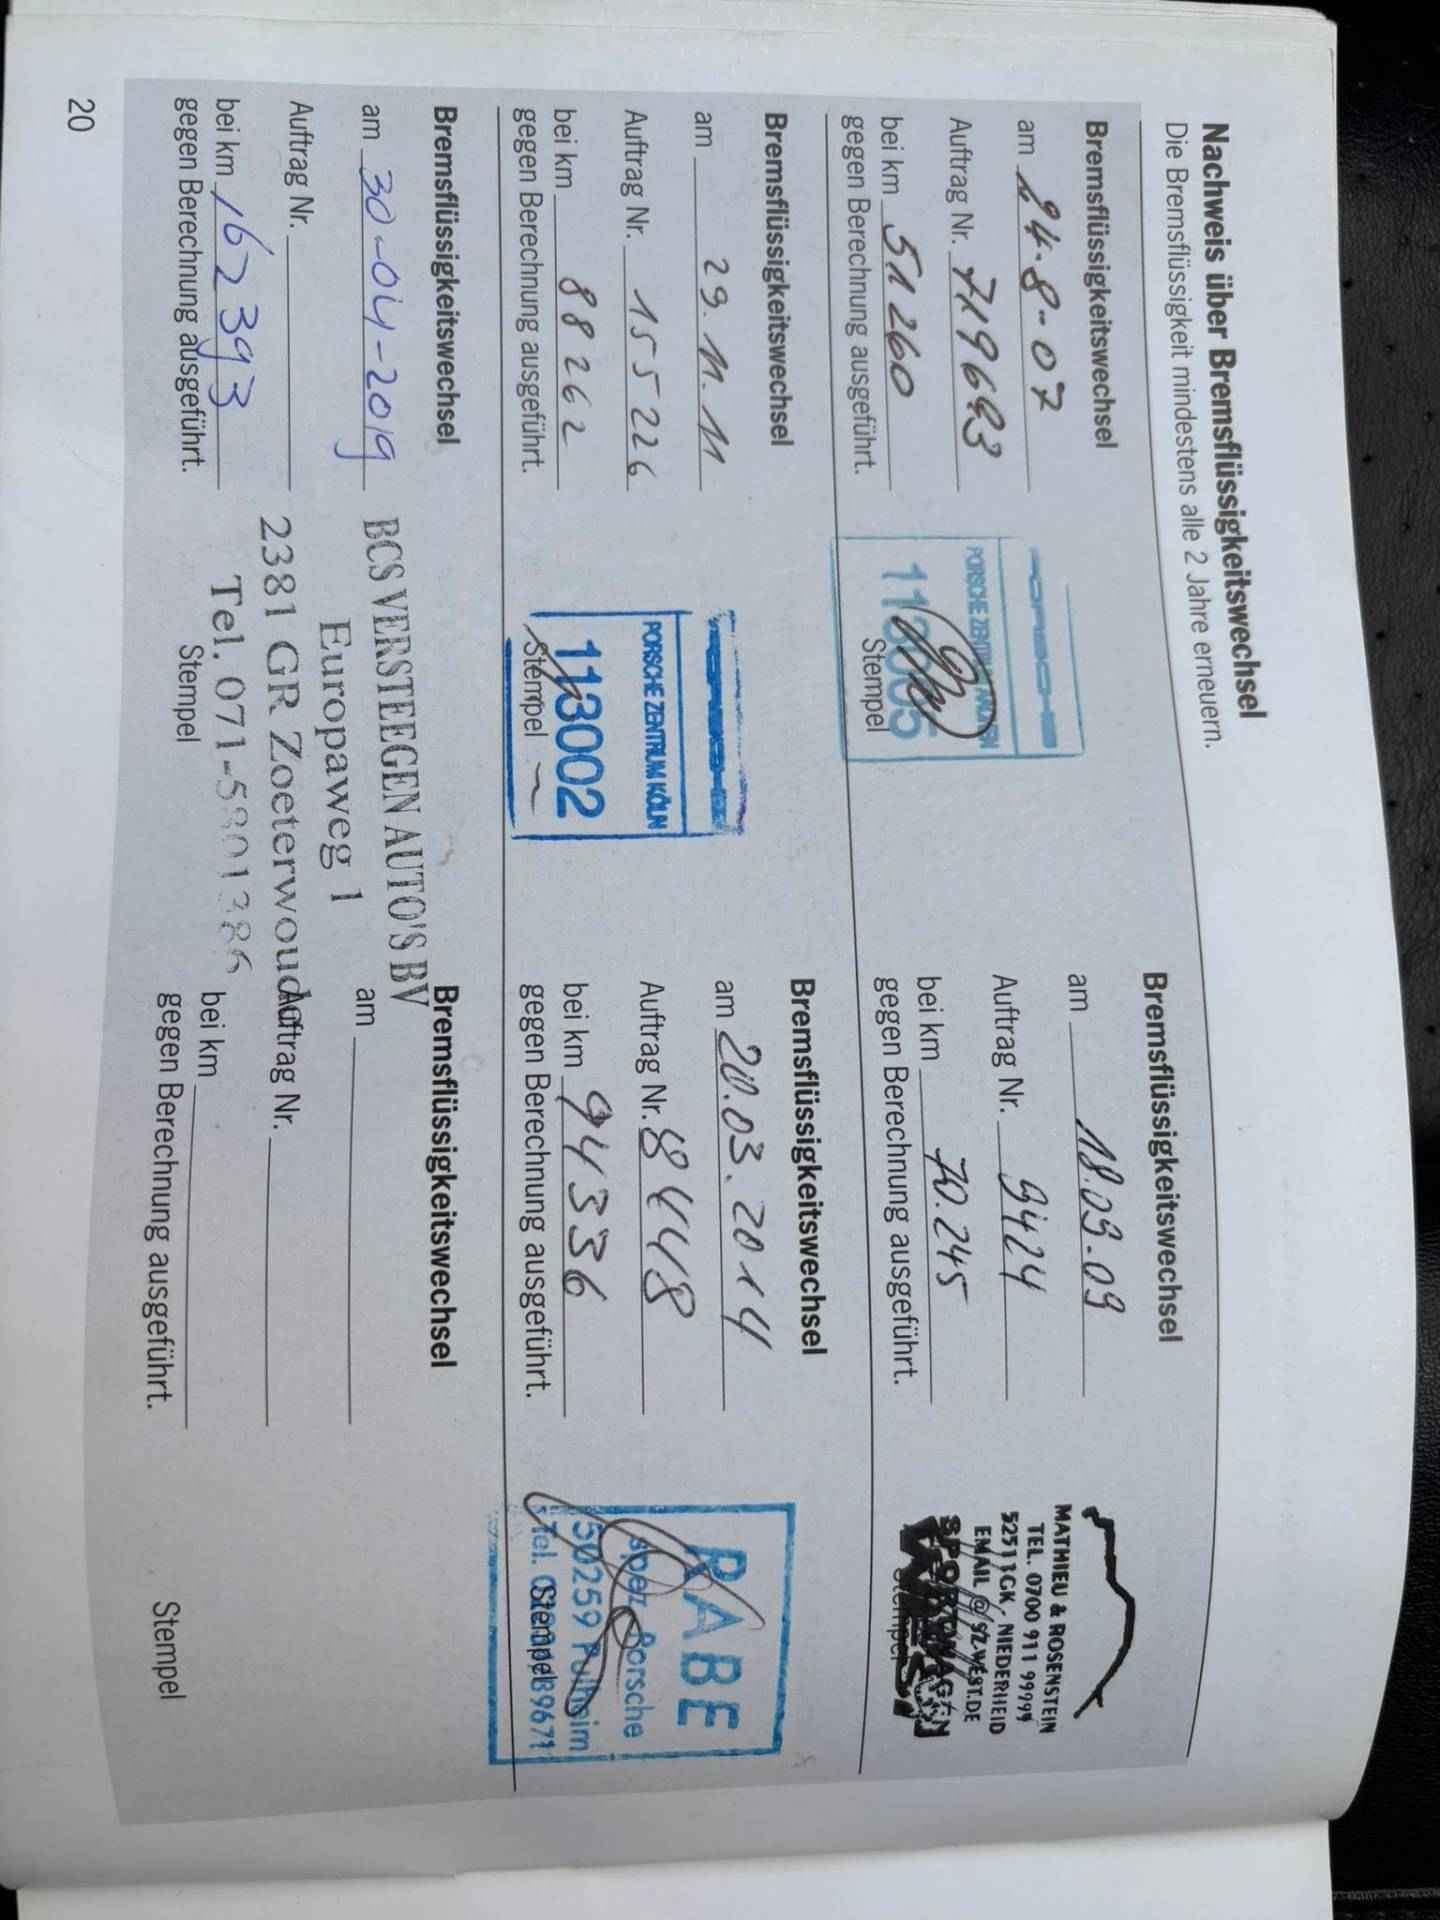 Nachweis über Bremsflüssigkeitswechsel
Die Bremsflüssigkeit mindestens alle 2 Jahre erneuern.
Bremsflüssigkeitswechsel
am 24.8-07
Auftrag Nr. 719693
bei km 51260
gegen Berechnung ausgeführt.
PORSCHE ZENTRUM
113005
Stempel
Bremsflüssigkeitswechsel
am 18.09.09
Auftrag Nr. 9424
bei km 70.245
gegen Berechnung ausgeführt.
MATHIEU & ROSENSTEIN
TEL. 0700 911 99999
52511GK, NIEDERHEID
EMAIL @SZ-WEST.DE
SPORTWAGEN
Stempel
Bremsflüssigkeitswechsel
am 29.11.11
Auftrag Nr. 155226
bei km 88262
gegen Berechnung ausgeführt.
PORSCHE ZENTRUM KÖLN
113002
Stempel
Bremsflüssigkeitswechsel
am 20.03.2014
Auftrag Nr. 18448
bei km 94336
gegen Berechnung ausgeführt.
RABE
spez. Porsche
50259 Pulheim
Tel.
Stempel
Bremsflüssigkeitswechsel
am 30-04-2019
Auftrag Nr.
bei km 162393
gegen Berechnung ausgeführt.
BCS VERSTEEGEN AUTO'S BV
Europaweg 1
2381 GR Zoeterwoude
Tel. 071-5801386
Stempel
Bremsflüssigkeitswechsel
am
Auftrag Nr.
bei km
gegen Berechnung ausgeführt.
Stempel
20